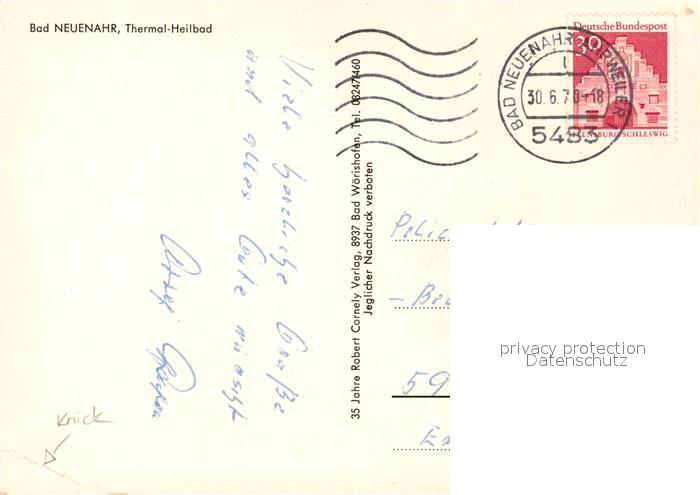 Bad NEUENAHR, Thermal-Heilbad
Viele herzliche Grüße
und alles Gute wünscht
35 Jahre Robert Cornely Verlag, 8937 Bad Wörishofen, Tel. 08247/1460
Jeglicher Nachdruck verboten
Deutsche Bundespost
30
FLENSBURG/SCHLESWIG
BAD NEUENAHR-AHRWEILER 1
l
30.6.70-18
5483
59
privacy protection
Datenschutz
Knick